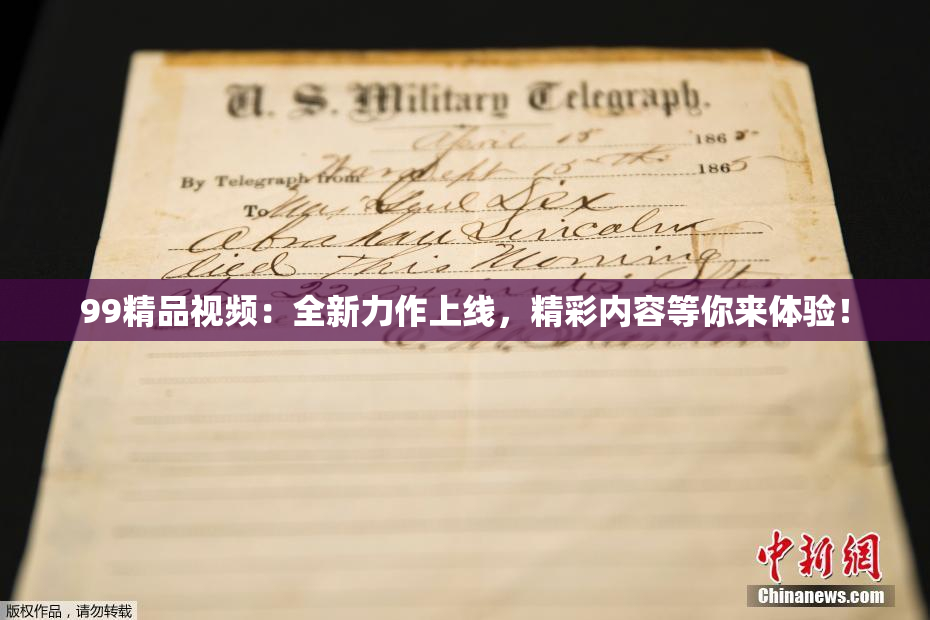 U. S. Military Telegraph.
April 15 1865
By Telegraph from War Dept 15th 1865
To Maj Genl Dix
Abraham Lincoln
died This Morning
at 22 minutes after
E. M. Stanton
99精品视频：全新力作上线，精彩内容等你来体验！
中新网
Chinanews.com
版权作品，请勿转载